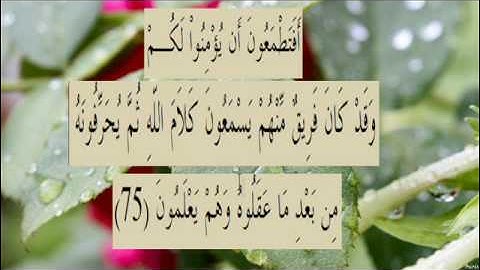 أَفَتَطْمَعُونَ أَن يُؤْمِنُواْ لَكُــمْ
وَقَدْ كَانَ فَرِيقٌ مِّنْهُمْ يَسْمَعُونَ كَلَامَ اللّهِ ثُمَّ يُحَرِّفُونَهُ
مِن بَعْدِ مَا عَقَلُوهُ وَهُمْ يَعْلَمُونَ (75)